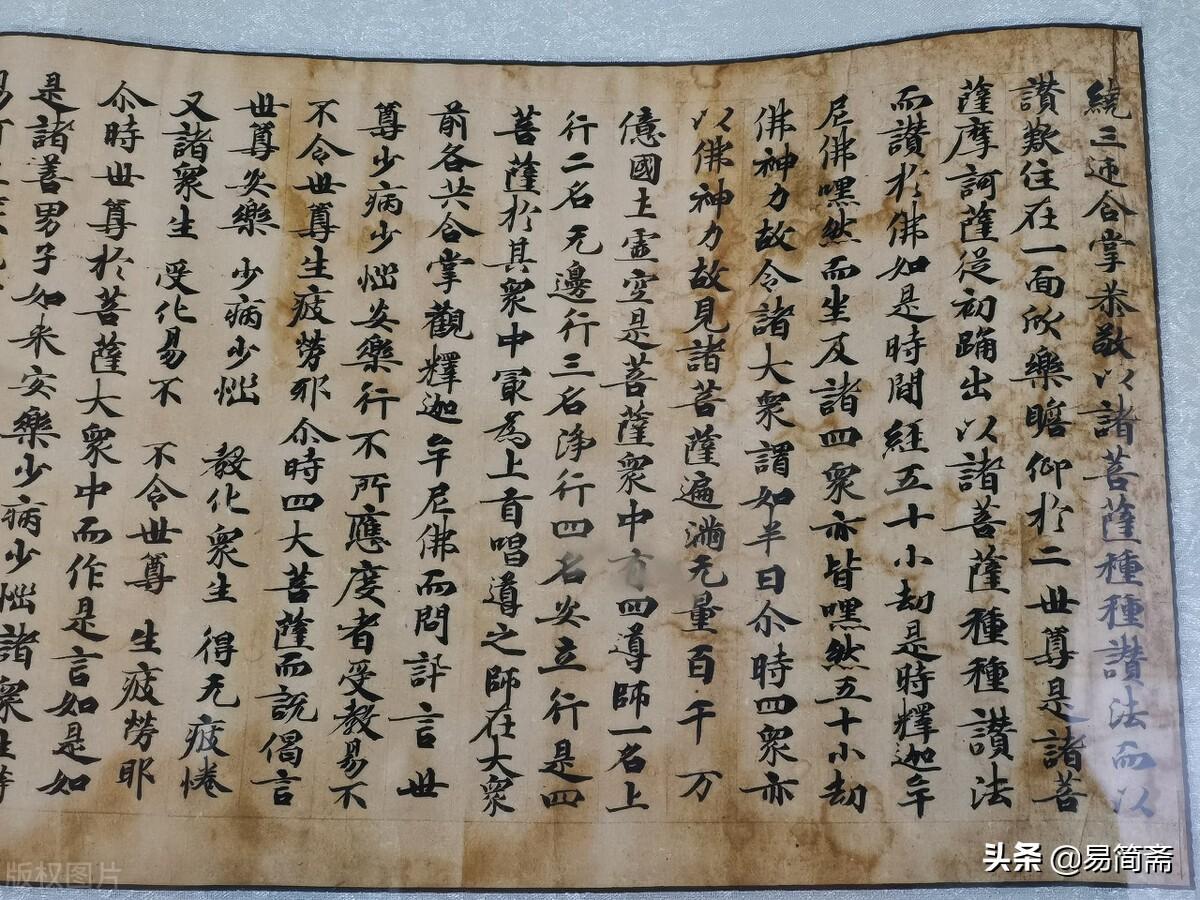 繞三迊合掌恭敬以諸菩薩種種讚法而以
讚歎住在一面欣樂瞻仰於二世尊是諸菩
薩摩訶薩從初踊出以諸菩薩種種讚法
而讚於佛如是時間經五十小劫是時釋迦牟
尼佛嘿然而坐及諸四衆亦皆嘿然五十小劫
佛神力故令諸大衆謂如半日尒時四衆亦
以佛神力故見諸菩薩遍滿无量百千万
億國土虛空是菩薩衆中有四導師一名上
行二名无邊行三名淨行四名安立行是四
菩薩於其衆中冣為上首唱導之師在大衆
前各共合掌觀釋迦牟尼佛而問訊言世
尊少病少惱安樂行不所應度者受教易不
不令世尊生疲勞耶尒時四大菩薩而說偈言
世尊安樂 少病少惱 教化衆生 得无疲惓
又諸衆生 受化易不 不令世尊 生疲勞耶
尒時世尊於菩薩大衆中而作是言如是如
是諸善男子如来安樂少病少惱諸衆生等
版权图片
头条 @易简斋